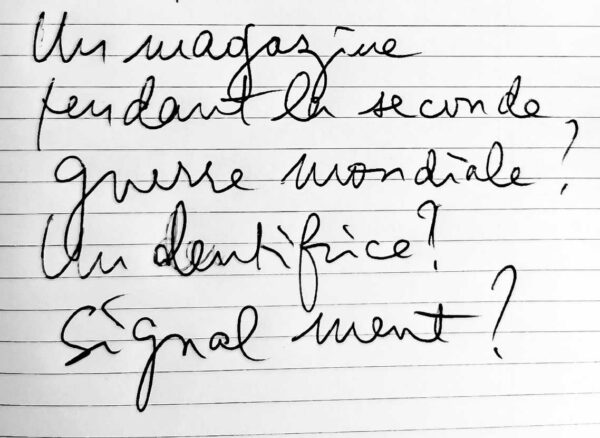 Un magazine
pendant la seconde
guerre mondiale ?
Un dentifrice ?
Signal ment ?